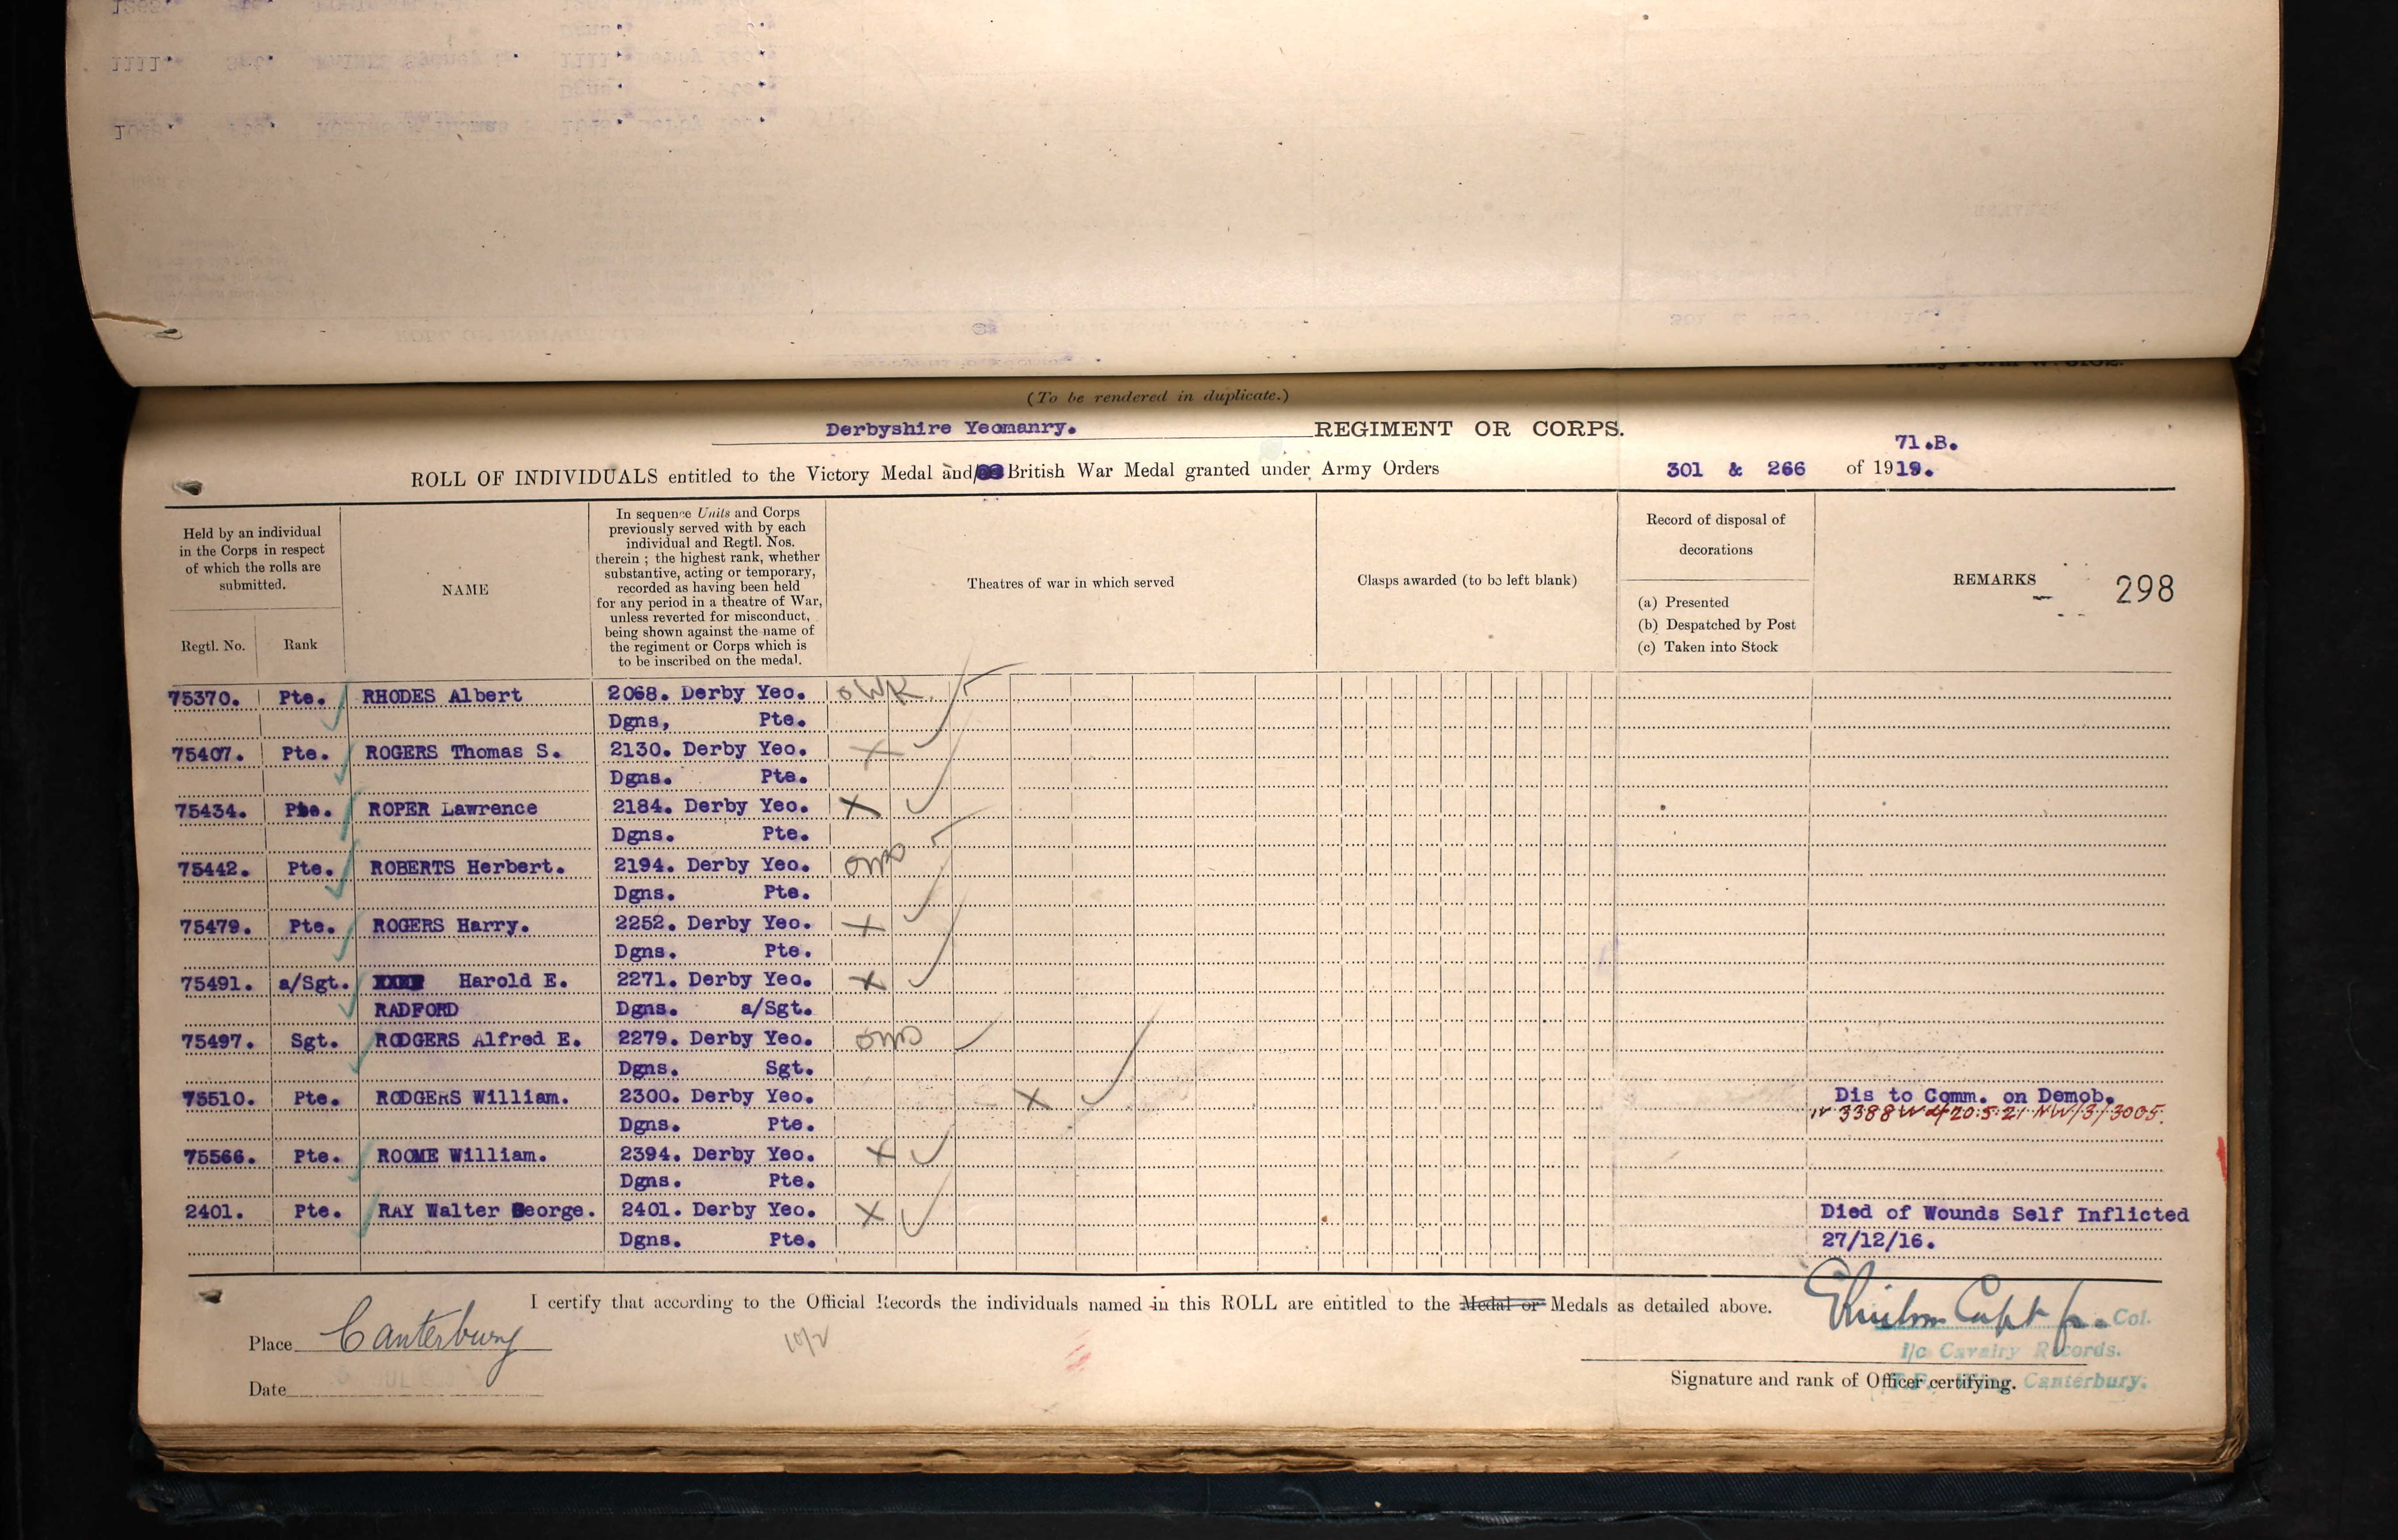 (To be rendered in duplicate.)
Derbyshire Yeomanry. REGIMENT OR CORPS.
71.B.
ROLL OF INDIVIDUALS entitled to the Victory Medal and/ British War Medal granted under Army Orders 301 & 266 of 1919.
Held by an individual in the Corps in respect of which the rolls are submitted.
Regtl. No. Rank
NAME
In sequence Units and Corps
previously served with by each
individual and Regtl. Nos.
therein ; the highest rank, whether
substantive, acting or temporary,
recorded as having been held
for any period in a theatre of War,
unless reverted for misconduct,
being shown against the name of
the regiment or Corps which is
to be inscribed on the medal.
Theatres of war in which served
Clasps awarded (to be left blank)
Record of disposal of
decorations
(a) Presented
(b) Despatched by Post
(c) Taken into Stock
REMARKS 298
75370. Pte. RHODES Albert 2068. Derby Yeo.
Dgns, Pte.
75407. Pte. ROGERS Thomas S. 2130. Derby Yeo. X
Dgns. Pte.
75434. Pte. ROPER Lawrence 2184. Derby Yeo. X
Dgns. Pte.
75442. Pte. ROBERTS Herbert. 2194. Derby Yeo.
Dgns. Pte.
75479. Pte. ROGERS Harry. 2252. Derby Yeo. X
Dgns. Pte.
75491. a/Sgt. Harold E. 2271. Derby Yeo. X
RADFORD Dgns. a/Sgt.
75497. Sgt. RODGERS Alfred E. 2279. Derby Yeo.
Dgns. Sgt.
75510. Pte. RODGERS William. 2300. Derby Yeo. X Dis to Comm. on Demob.
3388 20.5.21 NW/3/3005.
Dgns. Pte.
75566. Pte. ROOME William. 2394. Derby Yeo. X
Dgns. Pte.
2401. Pte. RAY Walter George. 2401. Derby Yeo. X Died of Wounds Self Inflicted
Dgns. Pte. 27/12/16.
I certify that according to the Official Records the individuals named in this ROLL are entitled to the Medal or Medals as detailed above.
Capt for Col.
Place Canterbury 10/2
i/c Cavalry Records.
Date
Signature and rank of Officer certifying. Canterbury.